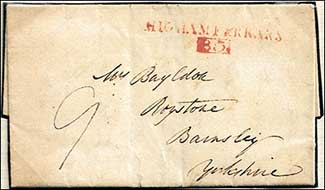 HIGHAM FERRARS
35
9
Mrs Bayldon
Roystone
Barnsley
Yorkshire